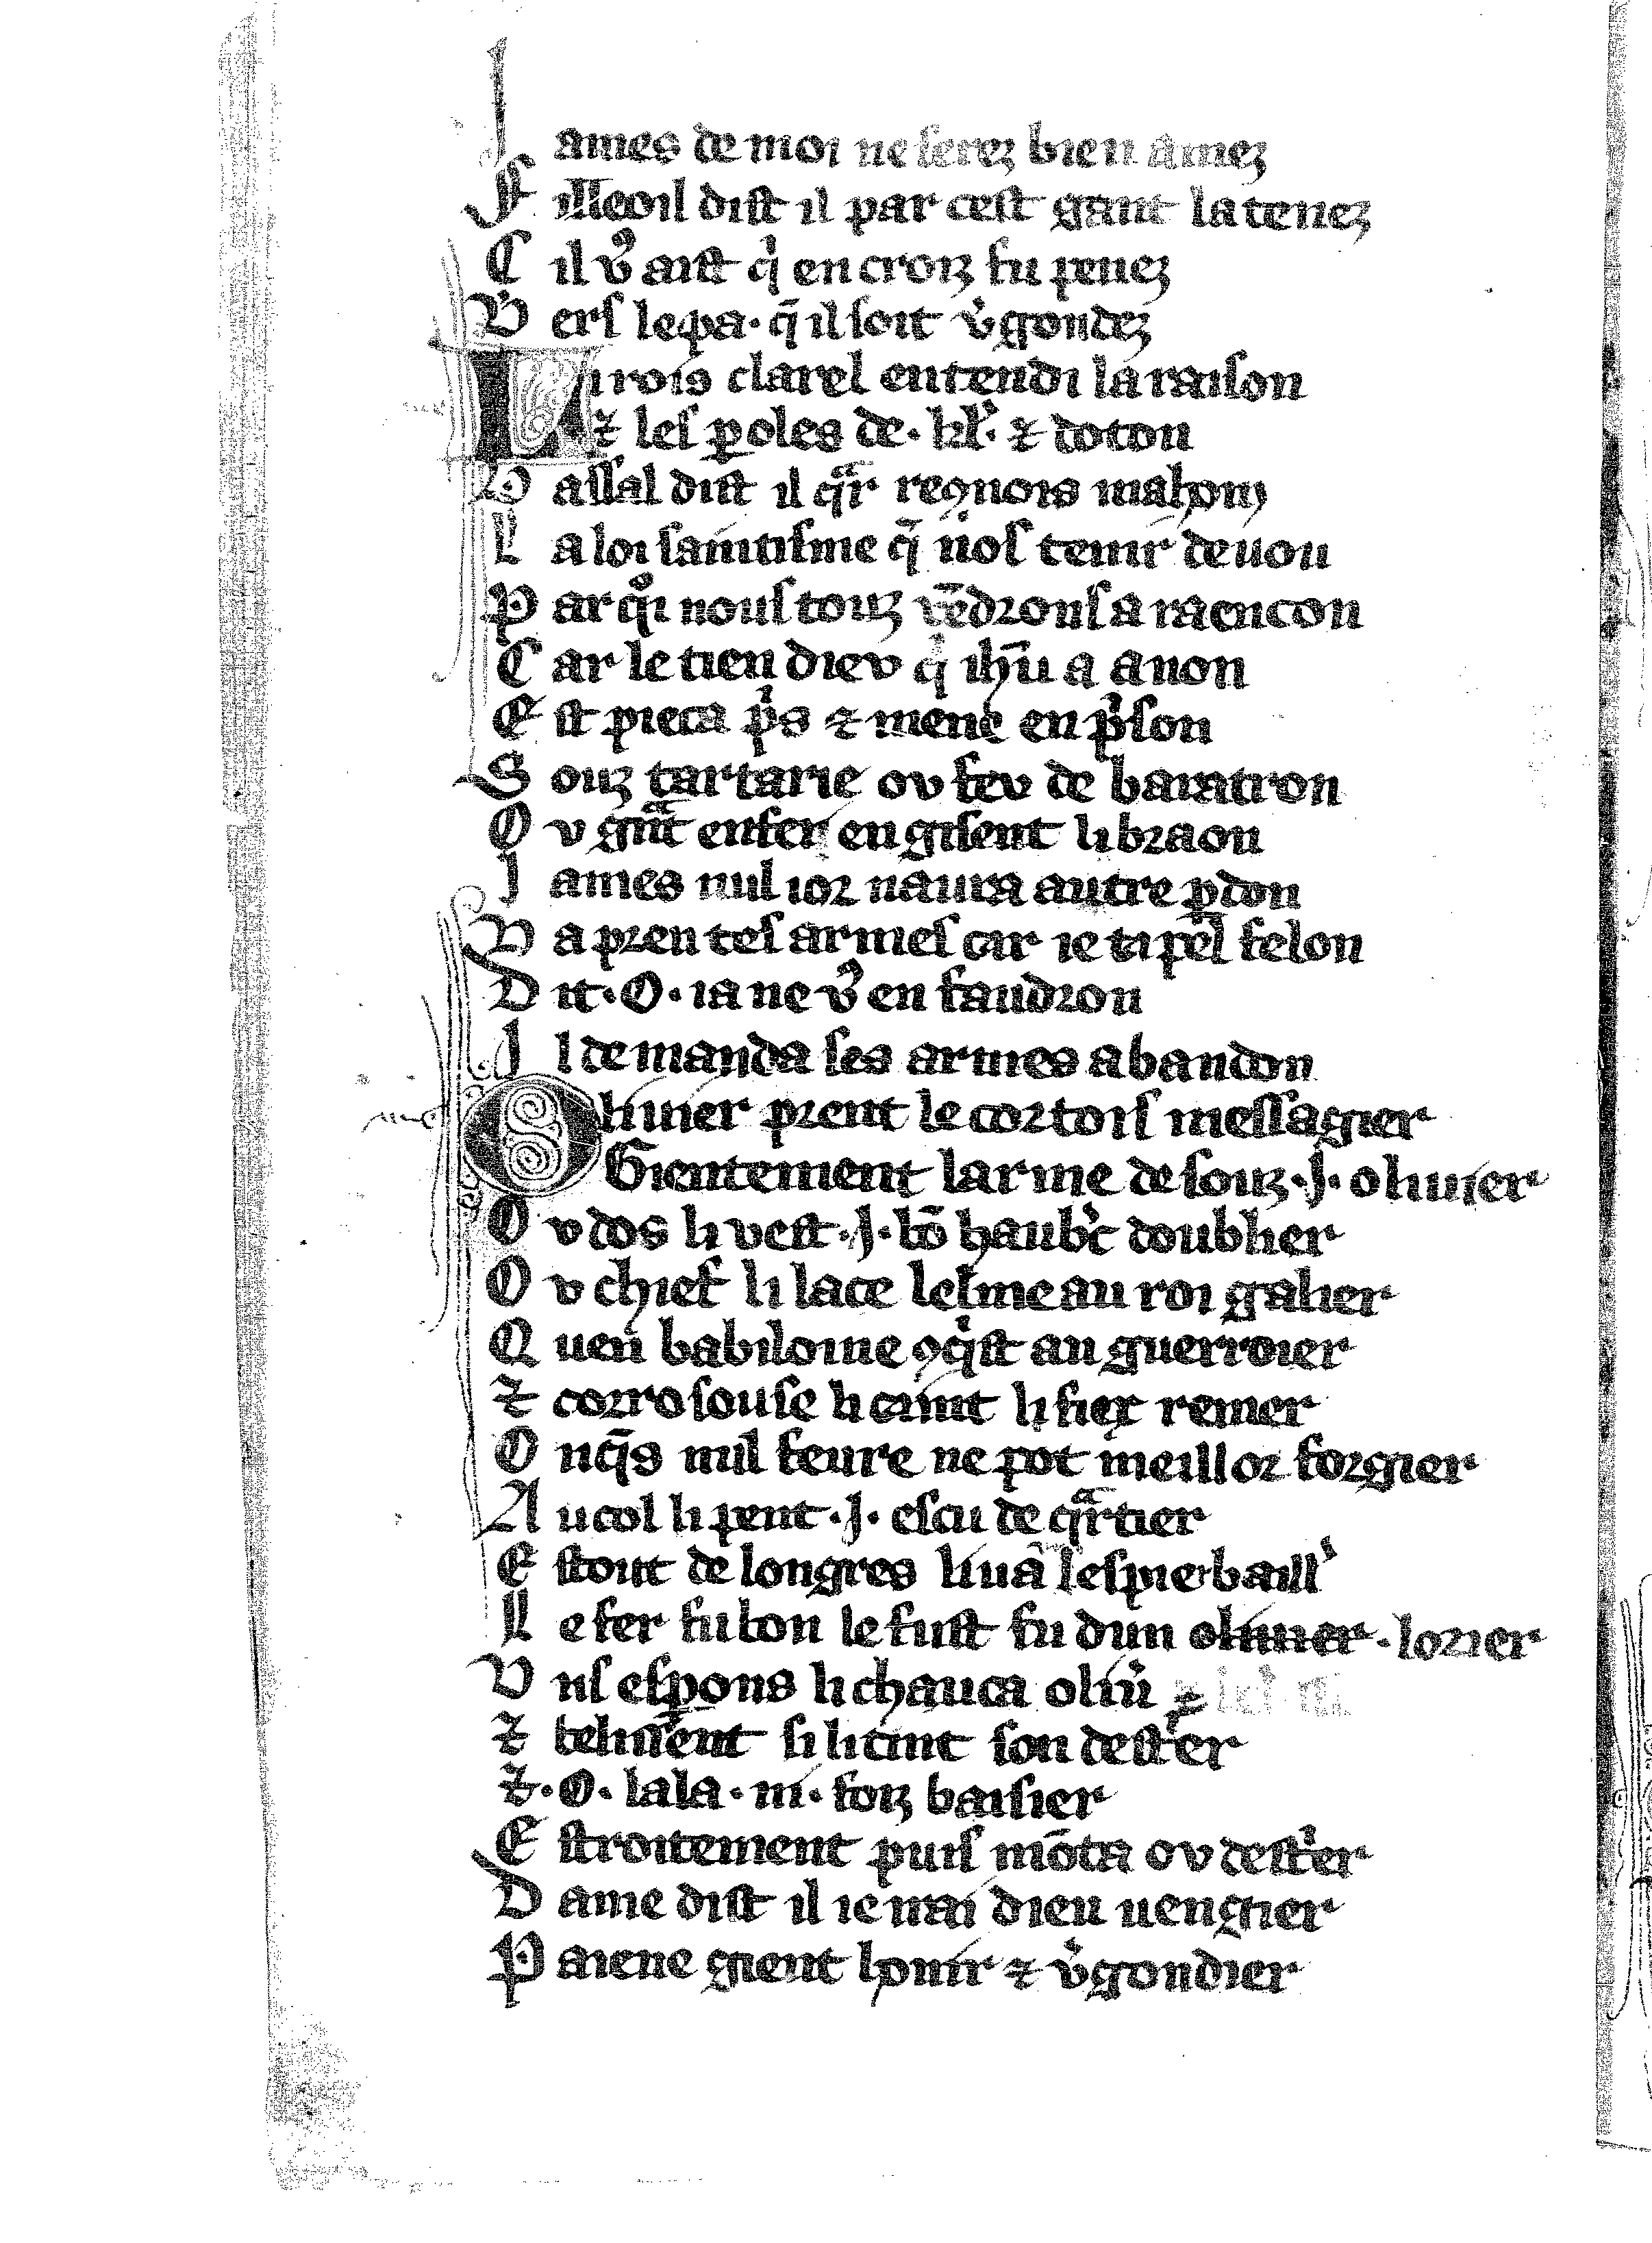 James de moi ne serez bien amez
Filleoil dist il par cest gant la tenez
Cil vͦ aist qͥ en croiz fu penez
Vers le pa. q̃ il soit v̾gondez
Li rois clarel entendi la raison
⁊ les ꝑoles de. kl'. ⁊ doton
Vassal dist il qᵃr reꝯnois mahom
La loi saintisme q̃ nos tenir deuon
Par qͦi nous touz rẽdrons a raencon
Car le tien diev qͥ ih̃u a a non
Est pieca pͥs ⁊ mene en pͥson
Souz tartarie ov feu de baratron
Ov gᵃnt enfer en gisent li braon
James nul ior naura autre ꝑdon
Va pren tes armes car ie ti ꝑel felon
Dit. O. ia ne vͦ en faudron
Il demanda ses armes a bandon
Oliuier prent le cortois messagier
Gientement larme de souz .J. oliuier
Ov dos li vest .J. bõ haubᵉc doublier
Ov chief li lace lelme au roi galier
Quen babiloine ꝯqͥst au guerroier
⁊ corrosouse li caint li fiex renier
Onq̃s mil feure ne pot meillor forgier
Au col li pent .J. escu de qᵃrtier
Estout de longres li ua lespie baill'
Le fer fu bon le fust fu dun oliuier. lorier
Vns espons li chauca oliu̾ ⁊
⁊ beliuse̾nt si li tint son dest̾er
⁊. O. lala. iii. foiz baisier
Estroitement puis mõta ov dest̾er
Dame dist il ie uai dieu uengier
Paiene gient honir ⁊ v̾gondier